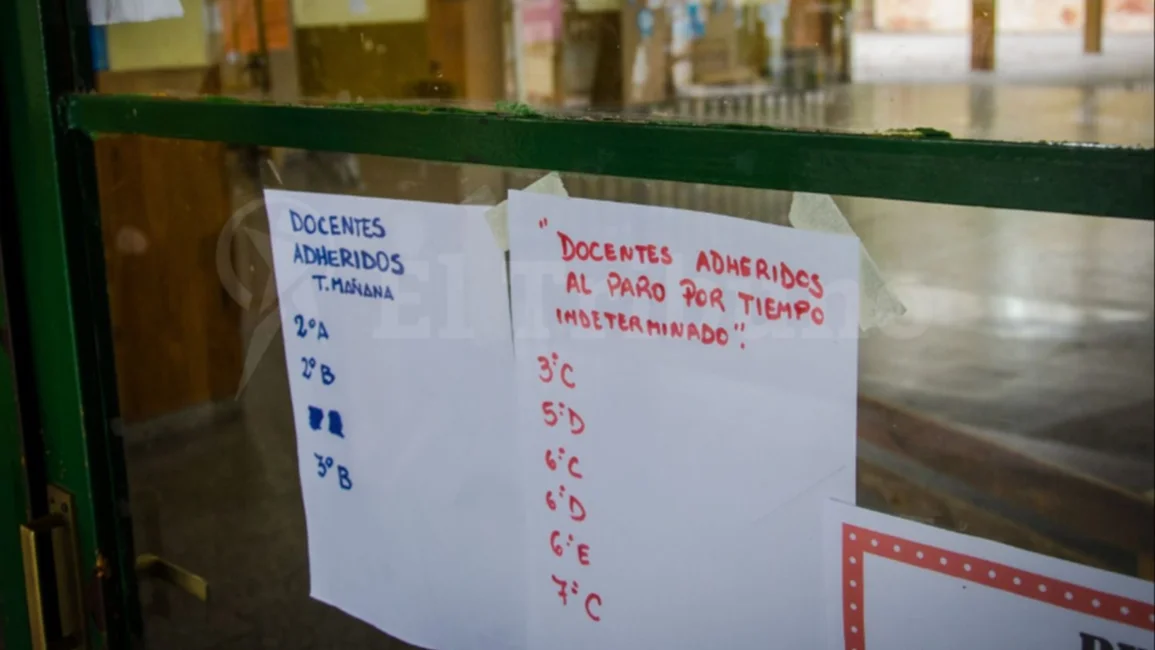 DOCENTES
ADHERIDOS
T. MAÑANA
2º A
2º B
3º B
"DOCENTES ADHERIDOS
AL PARO POR TIEMPO
INDETERMINADO".
3º C
5º D
6º C
6º D
6º E
7º C
El Tribuno